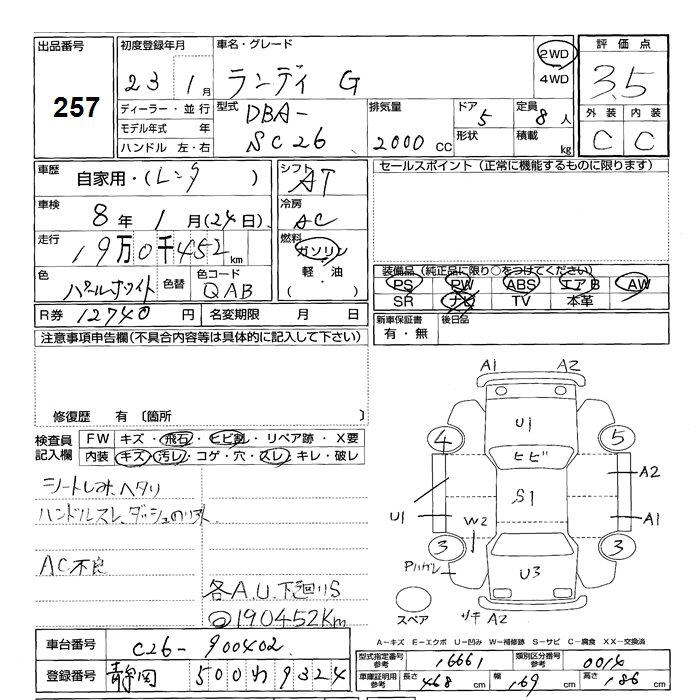 出品番号
257
初度登録年月
23年 1月
車名・グレード
ランディ G
2WD
4WD
評価点
3.5
外装 内装
C C
ディーラー・並行
モデル年式 年
ハンドル 左・右
型式
DBA-
SC26
排気量
2000 CC
ドア
5
形状
定員
8人
積載
kg
車歴
自家用・(レンタ )
シフト
AT
セールスポイント(正常に機能するものに限ります)
車検
8年 1月(24日)
冷房
AC
走行
19万0千452km
燃料
ガソリン
軽・油
・( )
色
パールホワイト
色替
色コード
QAB
装備品(純正品に限り○をつけてください)
PS PW ABS エアB AW
SR ナビ TV 本革
R券 12740円 名変期限 月 日
新車保証書
有・無
後日品
注意事項申告欄(不具合内容等は具体的に記入して下さい)
修復歴 有 〔箇所 〕
検査員
記入欄
FW キズ・飛石・ヒビ割・リペア跡・X要
内装 キズ・汚レ・コゲ・穴・スレ・キレ・破レ
シートしみ、ヘタリ
ハンドルスレ、ダッシュのリアト
AC不良
各A.U.下廻りS
190452Km
A1 A2
U1
4 5
ヒビ
A2
S1
U1
W2
A1
3 3
U3
スペア
A2
A−キズ E−エクボ U−凹み W−補修跡 S−サビ C−腐食 XX−交換済
車台番号 C26-900402
登録番号 静岡 500 わ 9324
型式指定番号
参考
16661
類別区分番号
参考
0014
車庫証明用
参考
長さ 468cm 幅 169cm 高さ 186cm